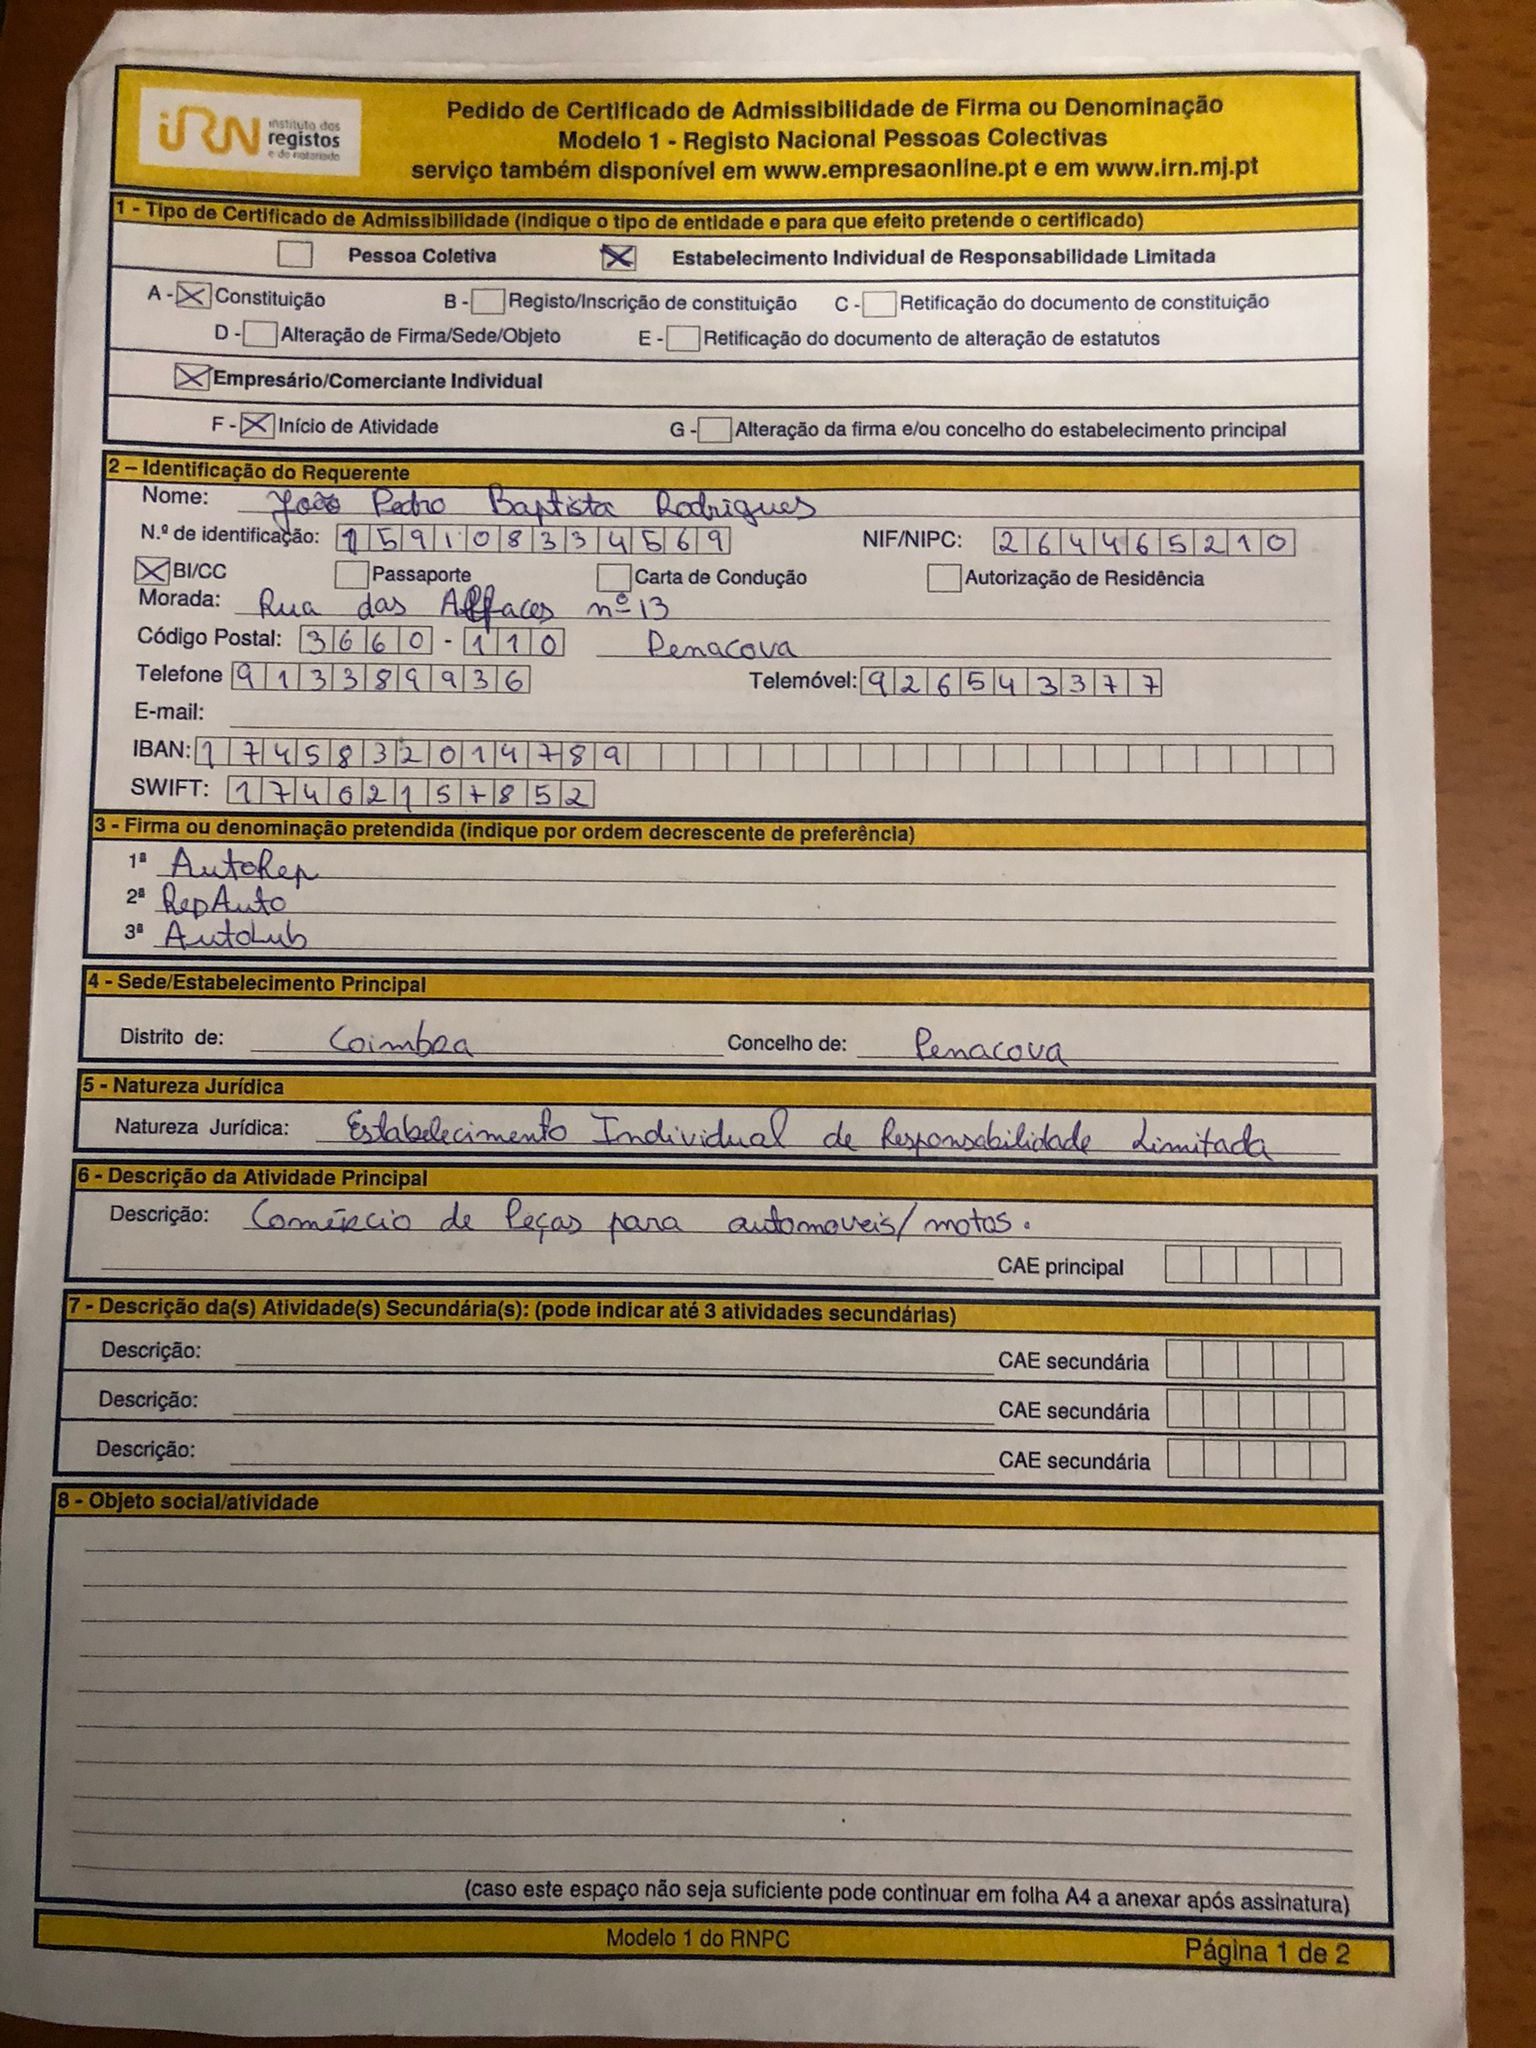 iRN instituto dos registos e do notariado
Pedido de Certificado de Admissibilidade de Firma ou Denominação
Modelo 1 - Registo Nacional Pessoas Colectivas
serviço também disponível em www.empresaonline.pt e em www.irn.mj.pt
1 - Tipo de Certificado de Admissibilidade (indique o tipo de entidade e para que efeito pretende o certificado)
Pessoa Coletiva X Estabelecimento Individual de Responsabilidade Limitada
A - X Constituição B - Registo/Inscrição de constituição C - Retificação do documento de constituição
D - Alteração de Firma/Sede/Objeto E - Retificação do documento de alteração de estatutos
X Empresário/Comerciante Individual
F - X Início de Atividade G - Alteração da firma e/ou concelho do estabelecimento principal
2 – Identificação do Requerente
Nome: João Pedro Baptista Rodrigues
N.º de identificação: 159108334569 NIF/NIPC: 264465210
X BI/CC Passaporte Carta de Condução Autorização de Residência
Morada: Rua das Alfaces nº 13
Código Postal: 3660 - 110 Penacova
Telefone 913389936 Telemóvel: 926543377
E-mail:
IBAN: 1745832014789
SWIFT: 17462157852
3 - Firma ou denominação pretendida (indique por ordem decrescente de preferência)
1ª AutoRep
2ª RepAuto
3ª AutoLub
4 - Sede/Estabelecimento Principal
Distrito de: Coimbra Concelho de: Penacova
5 - Natureza Jurídica
Natureza Jurídica: Estabelecimento Individual de Responsabilidade Limitada
6 - Descrição da Atividade Principal
Descrição: Comércio de Peças para automoveis/motos.
CAE principal
7 - Descrição da(s) Atividade(s) Secundária(s): (pode indicar até 3 atividades secundárias)
Descrição: CAE secundária
Descrição: CAE secundária
Descrição: CAE secundária
8 - Objeto social/atividade
(caso este espaço não seja suficiente pode continuar em folha A4 a anexar após assinatura)
Modelo 1 do RNPC
Página 1 de 2